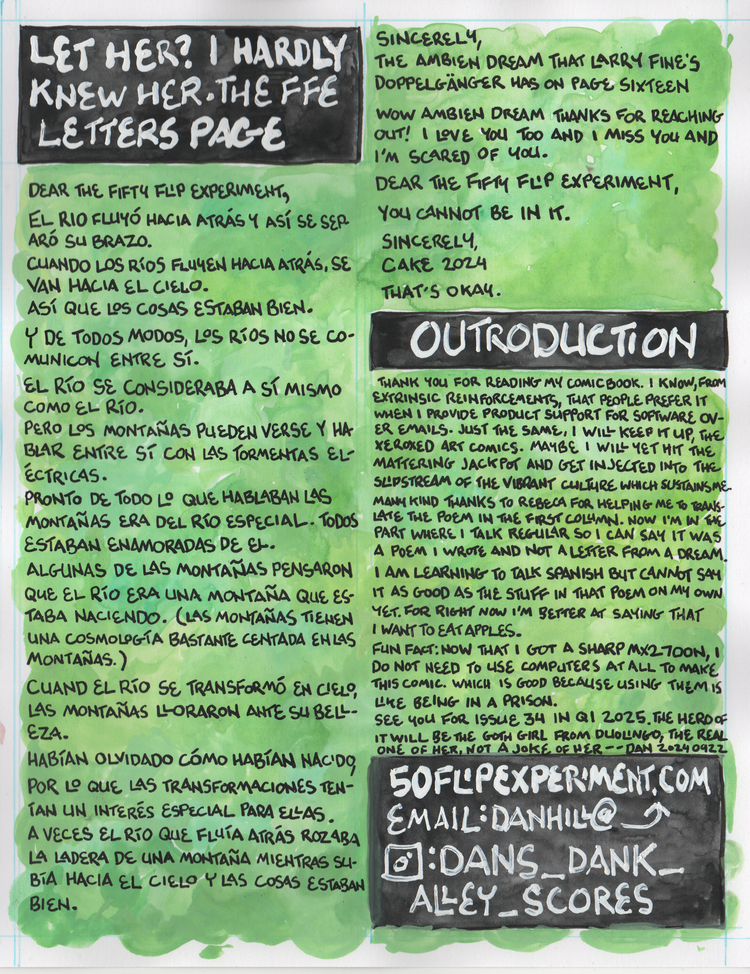 LET HER? I HARDLY
KNEW HER. THE FFE
LETTERS PAGE
DEAR THE FIFTY FLIP EXPERIMENT,
EL RIO FLUYÓ HACIA ATRÁS Y ASÍ SE SEP
ARÓ SU BRAZO.
CUANDO LOS RÍOS FLUYEN HACIA ATRÁS, SE
VAN HACIA EL CIELO.
ASÍ QUE LOS COSAS ESTABAN BIEN.
Y DE TODOS MODOS, LOS RÍOS NO SE CO-
MUNICON ENTRE SÍ.
EL RÍO SE CONSIDERABA A SÍ MISMO
COMO EL RÍO.
PERO LOS MONTAÑAS PUEDEN VERSE Y HA-
BLAR ENTRE SÍ CON LAS TORMENTAS EL-
ÉCTRICAS.
PRONTO DE TODO LO QUE HABLABAN LAS
MONTAÑAS ERA DEL RÍO ESPECIAL. TODOS
ESTABAN ENAMORADAS DE EL.
ALGUNAS DE LAS MONTAÑAS PENSARON
QUE EL RÍO ERA UNA MONTAÑA QUE ES-
TABA NACIENDO. (LAS MONTAÑAS TIENEN
UNA COSMOLOGÍA BASTANTE CENTADA EN LAS
MONTAÑAS.)
CUAND EL RÍO SE TRANSFORMÓ EN CIELO,
LAS MONTAÑAS LLORARON ANTE SU BELL-
EZA.
HABÍAN OLVIDADO CÓMO HABÍAN NACIDO,
POR LO QUE LAS TRANSFORMACIONES TEN-
ÍAN UN INTERÉS ESPECIAL PARA ELLAS.
A VECES EL RÍO QUE FLUÍA ATRÁS ROZABA
LA LADERA DE UNA MONTAÑA MIENTRAS SU-
BÍA HACIA EL CIELO Y LAS COSAS ESTABAN
BIEN.
SINCERELY,
THE AMBIEN DREAM THAT LARRY FINE'S
DOPPELGÄNGER HAS ON PAGE SIXTEEN
WOW AMBIEN DREAM THANKS FOR REACHING
OUT! I LOVE YOU TOO AND I MISS YOU AND
I'M SCARED OF YOU.
DEAR THE FIFTY FLIP EXPERIMENT,
YOU CANNOT BE IN IT.
SINCERELY,
CAKE 2024
THAT'S OKAY.
OUTRODUCTION
THANK YOU FOR READING MY COMIC BOOK. I KNOW, FROM
EXTRINSIC REINFORCEMENTS, THAT PEOPLE PREFER IT
WHEN I PROVIDE PRODUCT SUPPORT FOR SOFTWARE OV-
ER EMAILS. JUST THE SAME, I WILL KEEP IT UP, THE
XEROXED ART COMICS. MAYBE I WILL YET HIT THE
MATTERING JACKPOT AND GET INJECTED INTO THE
SLIPSTREAM OF THE VIBRANT CULTURE WHICH SUSTAINS ME.
MANY KIND THANKS TO REBECA FOR HELPING ME TO TRANS-
LATE THE POEM IN THE FIRST COLUMN. NOW I'M IN THE
PART WHERE I TALK REGULAR SO I CAN SAY IT WAS
A POEM I WROTE AND NOT A LETTER FROM A DREAM.
I AM LEARNING TO TALK SPANISH BUT CANNOT SAY
IT AS GOOD AS THE STUFF IN THAT POEM ON MY OWN
YET. FOR RIGHT NOW I'M BETTER AT SAYING THAT
I WANT TO EAT APPLES.
FUN FACT: NOW THAT I GOT A SHARP MX2700N, I
DO NOT NEED TO USE COMPUTERS AT ALL TO MAKE
THIS COMIC. WHICH IS GOOD BECAUSE USING THEM IS
LIKE BEING IN A PRISON.
SEE YOU FOR ISSUE 34 IN Q1 2025. THE HERO OF
IT WILL BE THE GOTH GIRL FROM DUOLINGO, THE REAL
ONE OF HER, NOT A JOKE OF HER -- DAN 20240922
50FLIPEXPERIMENT.COM
EMAIL: DANHILL@
:DANS_DANK_
ALLEY_SCORES